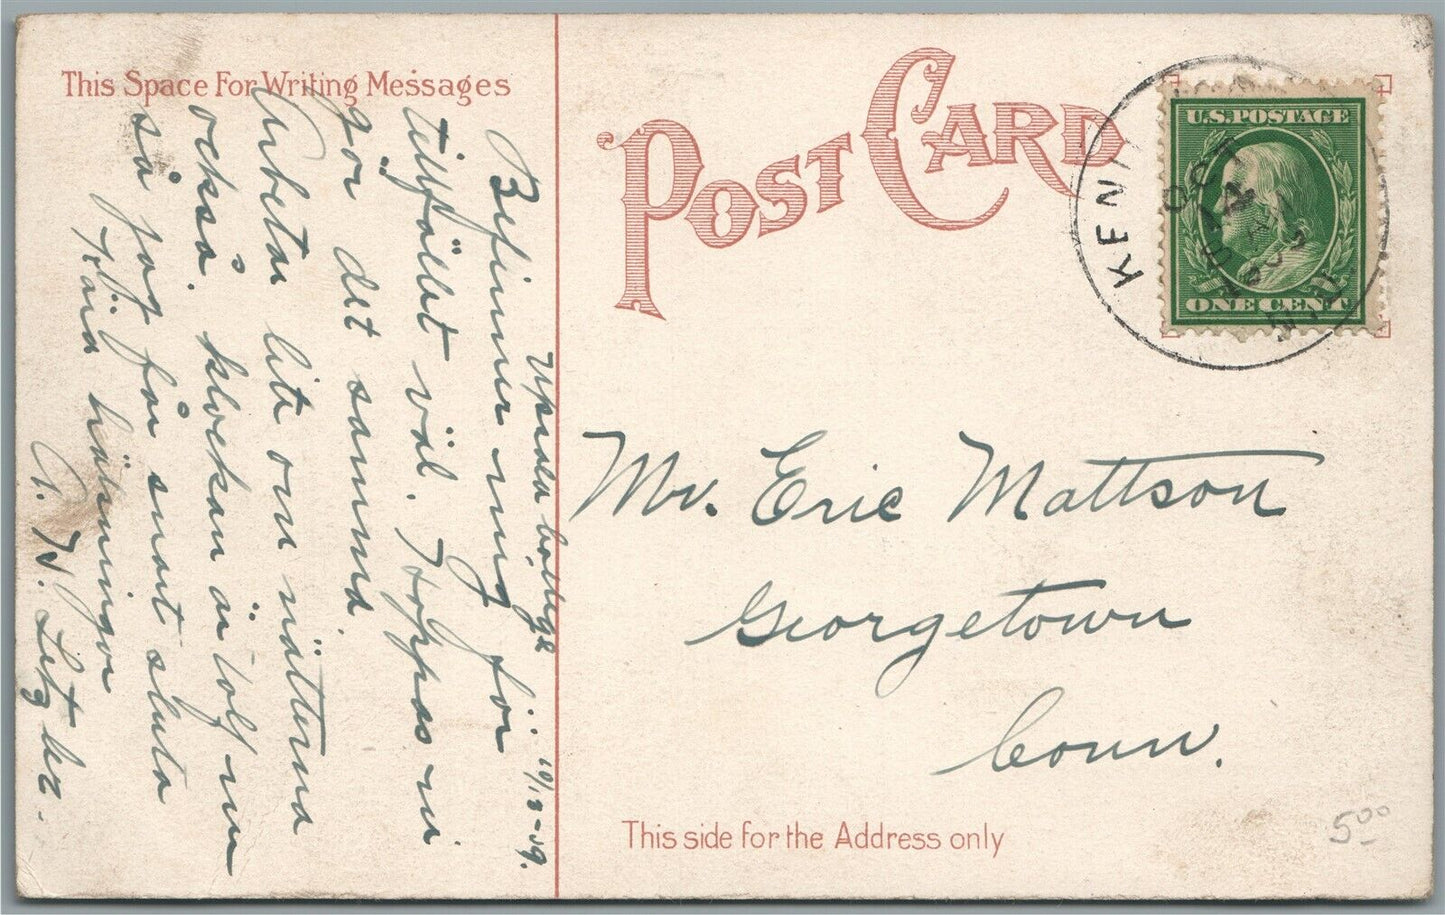 This Space For Writing Messages
POST CARD
U.S. POSTAGE
ONE CENT
KENI
OCT
Upsala College 10/13-09.
Befinner mig för
tillfället väl. Hoppas ni
gör det samma.
Arbetar lite om nätterna
också. klockan är tolf nu
så jag får snart sluta
Kära hälsningar
Mr. Eric Mattson
Georgetown
Conn.
This side for the Address only
5.00